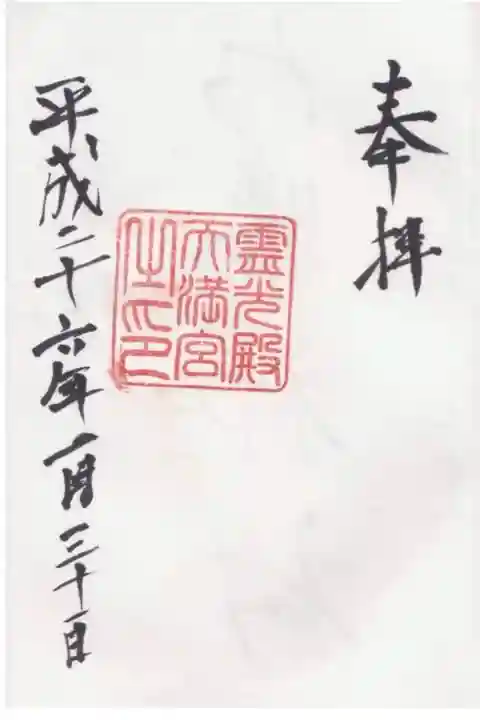 奉拝
霊光殿
天満宮
之印
平成二十六年一月三十一日